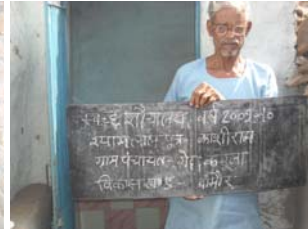 स्वच्छ शौचालय वर्ष 2009-10
श्यामलाल पुत्र - काशीराम
ग्राम पंचायत -
विकासखण्ड -